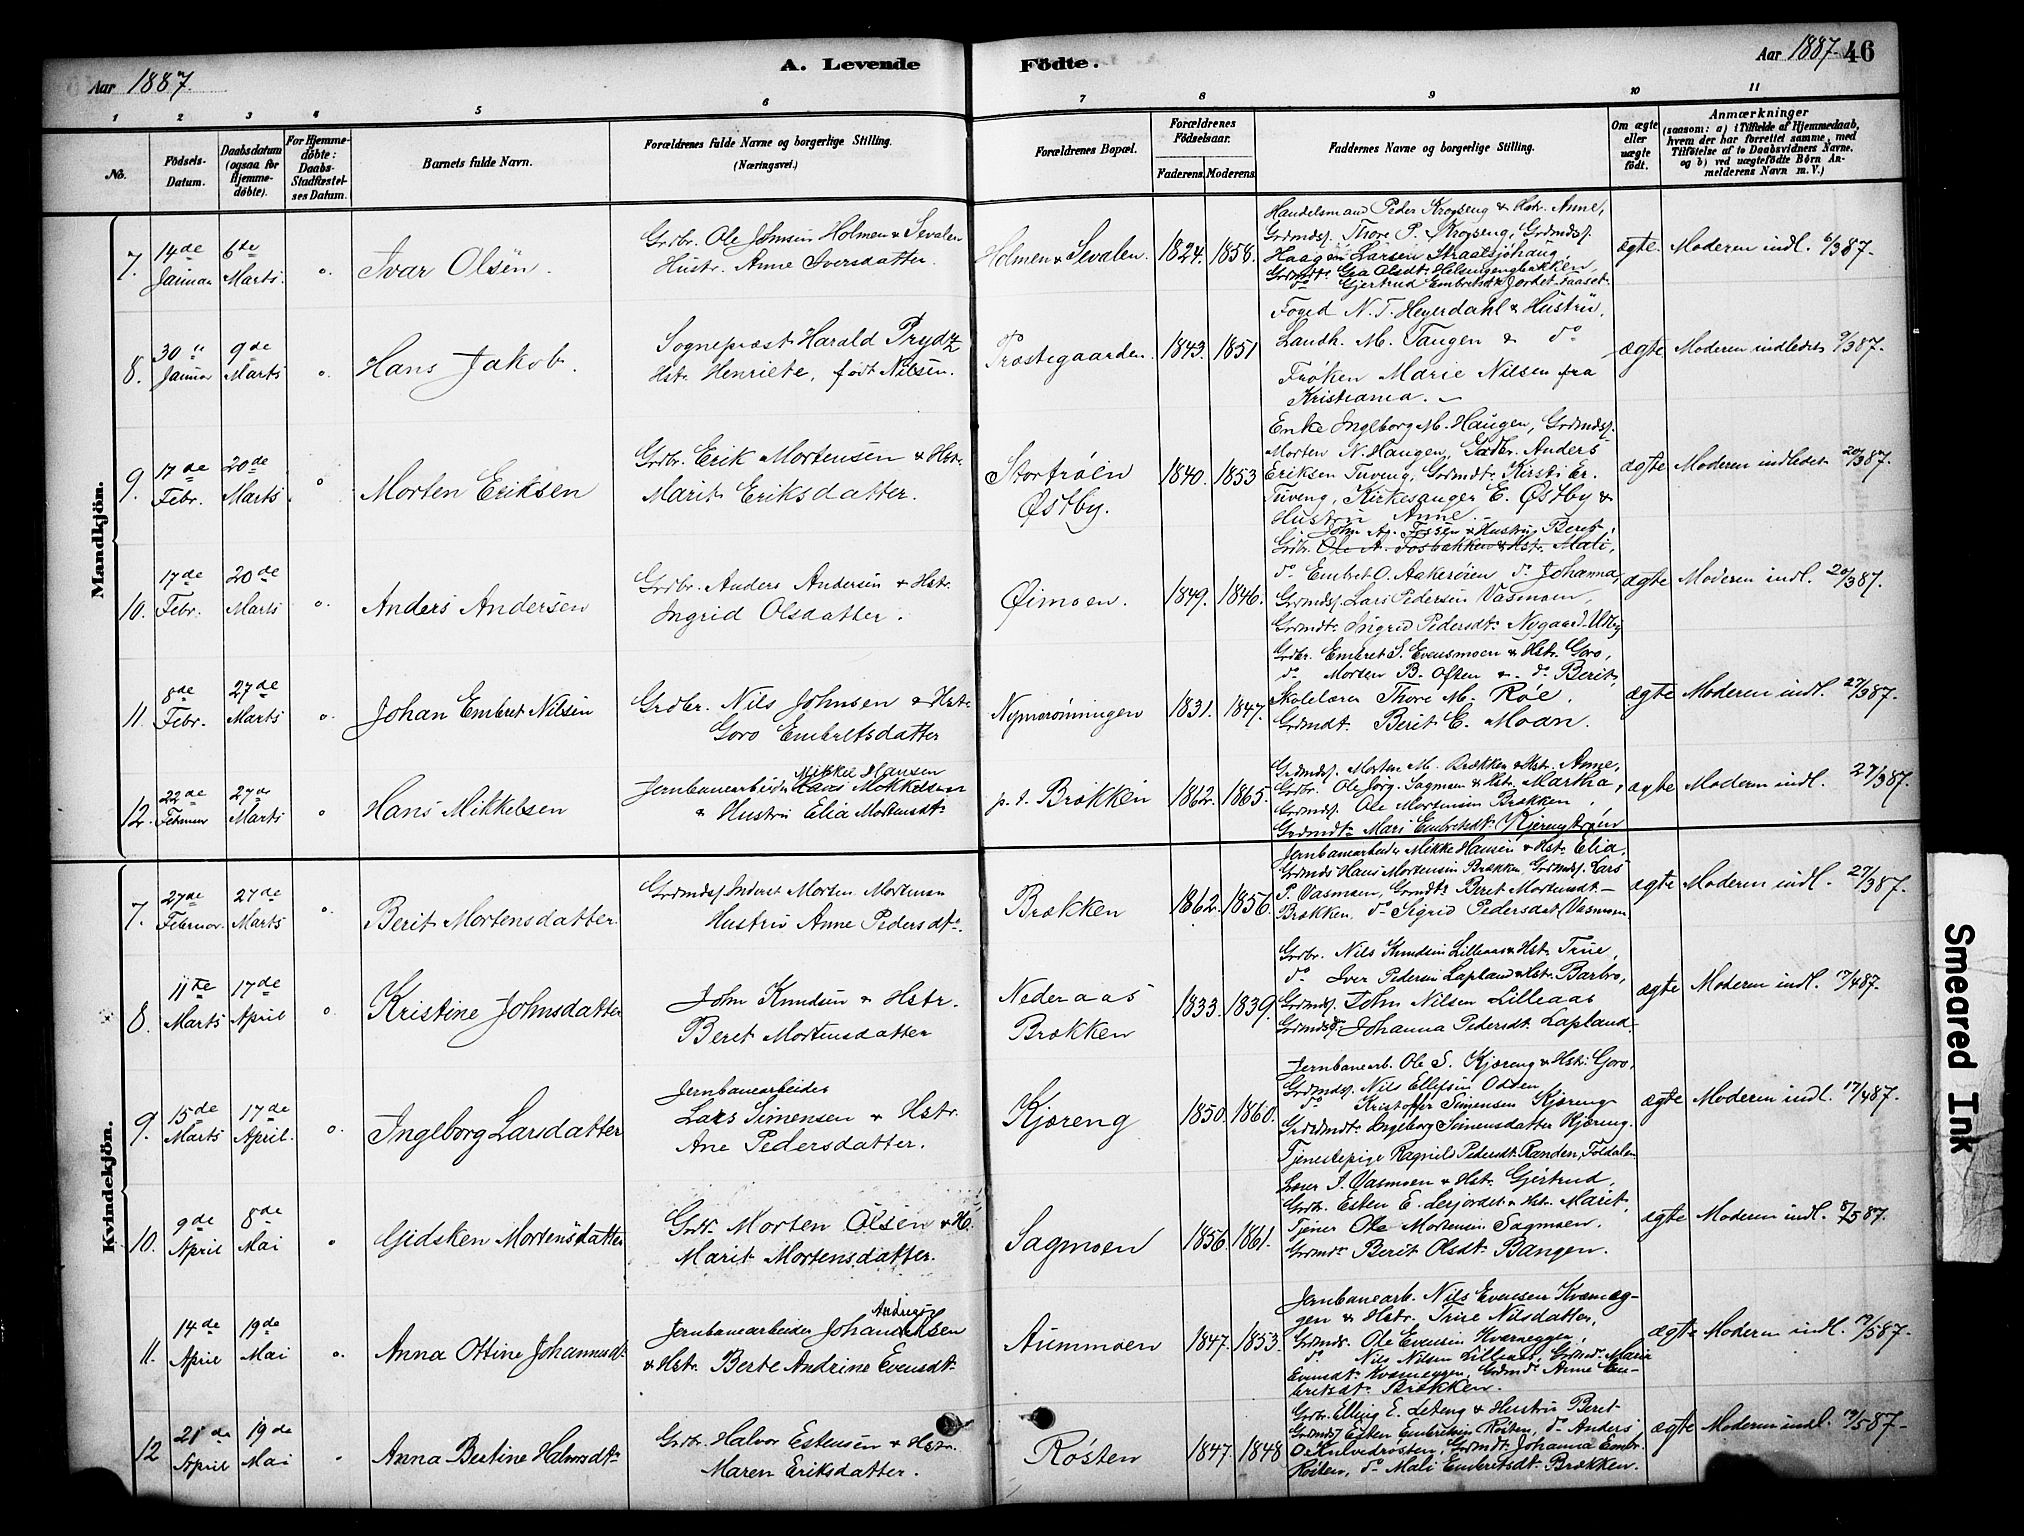 Aar 1887.
A. Levende
Födte.
Aar 1887.
46
1 2 3 4 5 6 7 8 9 10 11
No.
Födsels-
Datum.
Daabsdatum
(ogsaa for
Hjemme-
döbte).
For Hjemme-
döbte:
Daabs-
Stadfæstel-
ses Datum.
Barnets fulde Navn.
Forældrenes fulde Navne og borgerlige Stilling.
(Næringsvei.)
Forældrenes Bopæl.
Forældrenes
Födselsaar.
Faderens. Moderens.
Faddernes Navne og borgerlige Stilling.
Om ægte
eller
uægte
födt.
Anmærkninger
(saasom: a) i Tilfælde af Hjemmedaab,
hvem der har forrettet samme, med
Tilföielse af to Daabsvidners Navne.
og b) ved uægtefödte Börn An-
melderens Navn m. V.)
Mandkjön.
7.
14de
Januar
6te
Marts.
Ivar Olsen.
Grdbr. Ole Johnsen Holmen v Sevalen
Hustr. Anne Iversdatter.
Holmen v Sevalen.
1824. 1858.
Handelsmand Peder Krogseng & Hstr. Anne,
Grdmdsf. Thore P. Krogseng, Grdmdsf.
Haagen Larsen Straalsjöhaug,
Grdmdtr Gea Olsdt Helsingengbakken,
do Gjertrud Embretsdt Jordet-Faaset.
ægte.
Moderen indl. 6/3 87.
8.
30"
Januar
9de
Marts
Hans Jakob.
Sognepræst Harald Prydz
Hstr Henriete, födt Nilsen.
Præstegaarden.
1843. 1851
Foged N. T. Heyerdahl & Hustru,
Landh. M. Tangen & do
Fröken Marie Nilsen fra
Kristiania.
ægte
Moderen indledet 9/3 87.
9.
17de
Febr.
20de
Marts
Morten Eriksen
Grdbr. Erik Mortensen & Hstr.
Marit Eriksdatter.
Stortröen
Østby.
1840. 1853
Enke Ingeborg M. Haugen, Grdmdsf.
Morten N. Haugen, Grdbr. Anders
Eriksen Tuveng, Grdmdtr. Kirsti Er.
Tuveng, Kirkesanger E. Østby &
Hustru Anne.
ægte
Moderen indledet 20/3 87.
10.
17de
Febr.
20de
Marts
Anders Andersen
Grdbr. Anders Andersen & Hstr.
Ingrid Olsdatter.
Øimoen.
1849. 1846.
John Aj. Fossen & Hustru Beret,
Grdbr. Ole A. Fosbakken & Hstr. Mali,
do Embret O. Aakeröien do Johanna,
Grdmdsf. Lars Pedersen Vasmoen,
Grdmdtr Ingrid Pedersdtr Nygaard-Utby
ægte
Moderen indl. 20/3 87.
11.
8de
Febr.
27de
Marts
Johan Embret Nilsen
Grdbr. Nils Johnsen & Hstr
Goro Embretsdatter
Nymoröningen
1831. 1847.
Grdbr. Embret S. Evensmoen & Hstr. Goro,
do Morten B. Often & do Berit,
Skolelærer Thore M. Röe,
Grdmdt. Berit E. Moan.
ægte
Moderen indl. 27/3 87.
12.
22de
Februar
27de
Marts
Hans Mikkelsen
Mikkel Hansen
Jernbanearbeider Hans Mikkelsen
& Hustru Elia Mortensdtr
p. t. Brækken
1862. 1865.
Grdmdsf. Morten M. Brækken & Hstr. Anne,
Grdbr. Ole Jörg. Sagmoen & Hstr. Martha,
Grdmdsf. Ole Mortensen Brækken,
Grdmdtr Mari Embretsdt. Kjærengtröen
ægte
Moderen indl. 27/3 87.
Kvindekjön.
7.
27de
Februar.
27de
Marts
Berit Mortensdatter
Grdmdsf Inderst Morten Mortensen
Hustru Anne Pedersdtr.
Brækken
1862. 1856.
Jernbanearbeider Mikkel Hansen & Hstr. Elia,
Grdmds Hans Mortensen Brækken, Grdmdsf. Lars
P. Vasmoen, Grmdtr Berit Mortensdt
Brækken, do Sigrid Pedersdat Vasmoen
ægte
Moderen indl. 27/3 87.
8.
11te
Marts
17de
April
Kristine Johnsdatter
John Knudsen & Hstr.
Beret Mortensdatter
Nederaas
Brækken
1833. 1839.
Grdbr. Nils Knudsen Lilleaas & Hstr. True,
do Iver Pedersen Lapland & Hstr. Barbro,
Grdmdsf. John Nilsen Lilleaas
Grdmdsdtr Johanna Pedersdt. Lapland.
ægte
Moderen indl. 17/4 87.
9.
15de
Marts
17de
April.
Ingeborg Larsdatter
Jernbanearbeider
Lars Simensen & Hstr.
Ane Pedersdatter.
Kjæreng
1850. 1860.
Jernbanearb. Ole S. Kjæreng & Hstr. Goro,
Grdmdsf. Nils Ellefsen Odden,
do Kristoffer Simensen Kjæreng
Grdmdtr Ingeborg Simensdatter Kjæreng.
Tjenestepige Ragnild Pedersdt. Randen, Foldalen
ægte
Moderen indl. 17/4 87.
10.
9de
April
8de
Mai
Gidsken Mortensdatter
Grdbr Morten Olsen & H.
Marit Mortensdatter.
Sagmoen
1856. 1861.
Lærer S. Vasmoen & Hstr. Gjertrud,
Grdbr. Esten E. Lesjordet & Hstr. Marit,
Tjener Ole Mortensen Sagmoen.
Grdmdtr Berit Olsdt Bangen.
ægte
Moderen indl. 8/5 87.
11.
14de
April
19de
Mai
Anna Ottine Johannesdt.
Jernbanearbeider Johan Andreasen
& Hstr. Berte Andrine Evensdtr.
Aummoen
1847. 1853.
Jernbanearb. Nils Evensen Kværneg-
gen & Hstr. True Nilsdatter,
Grdmds. Ole Evensen Kværneggen,
do Nils Nilsen Lilleaas, Grdmdtr Maria
Evensdt Kværneggen, Grdmdtr Anne Em-
bretsdt Brækken.
ægte
Moderen indl. 19/5 87.
12
21de
April
19de
Mai
Anna Bertine Halvorsdtr
Grdbr. Halvor Estensen & Hstr.
Maren Eriksdatter.
Rösten
1847. 1848
Grdbr. Elling E. Leteng & Hustru Beret
Grdmdsf Esten Embretsen Rösten, do Anders
O. Kulvedrösten, Grdmdt. Johanna Embr.
Rösten, do Mali Embretsdt. Brækken.
ægte
Moderen indl. 19/5 87.
Smeared Ink